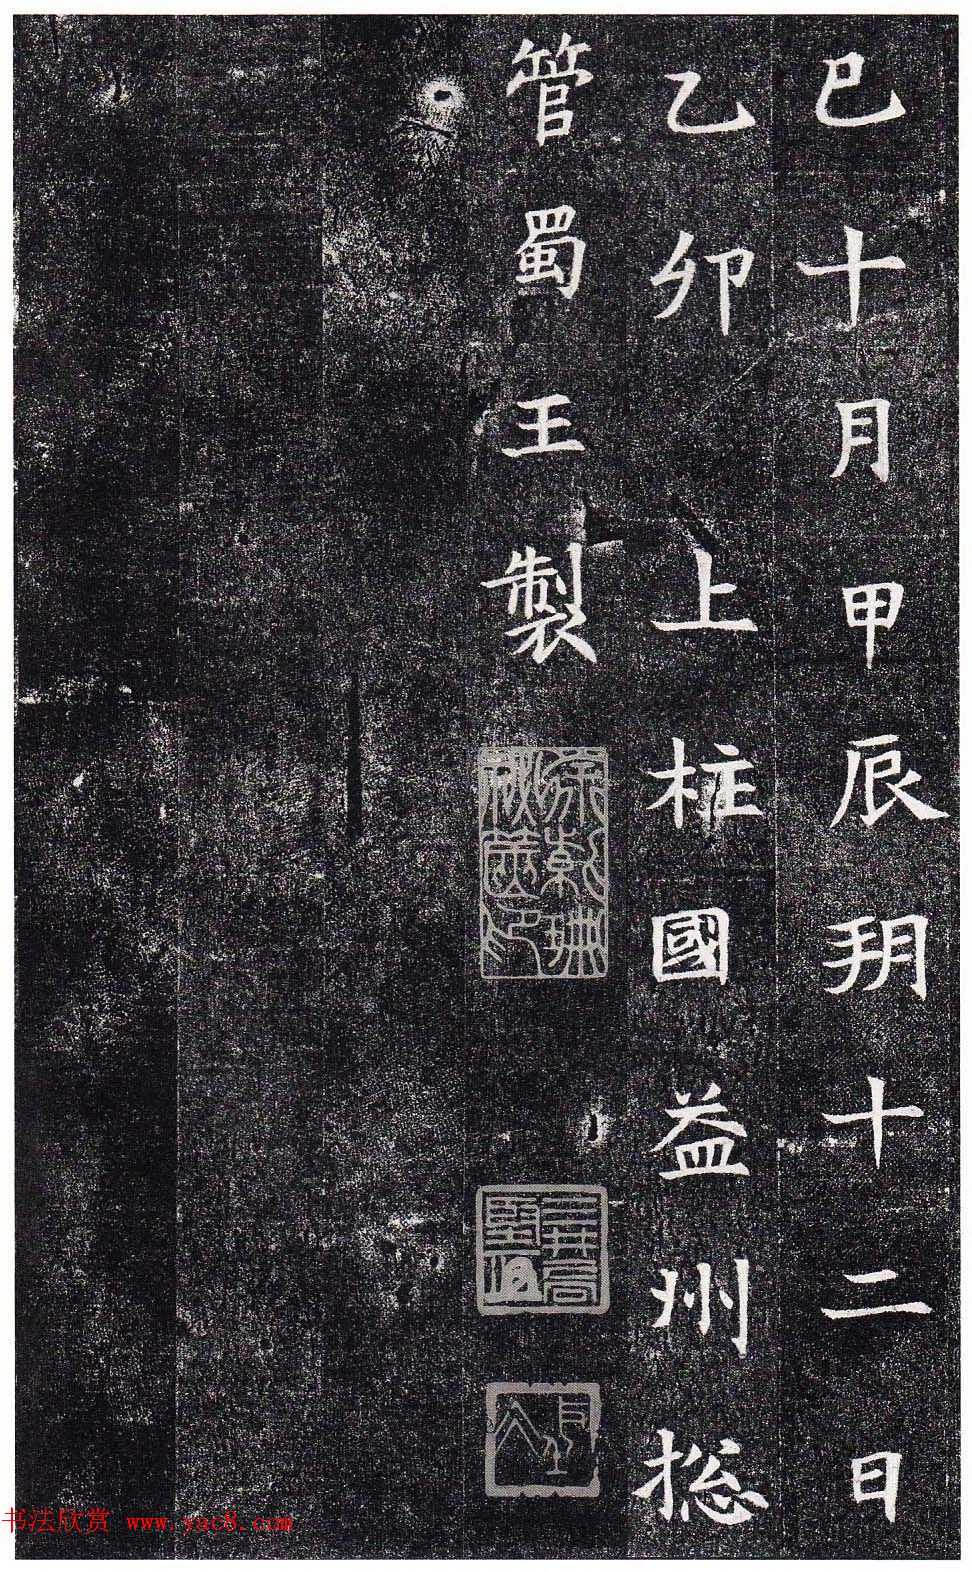 巳十月甲辰朔十二日
乙卯上柱國益州揔
管蜀王製
书法欣赏 www.yac8.com